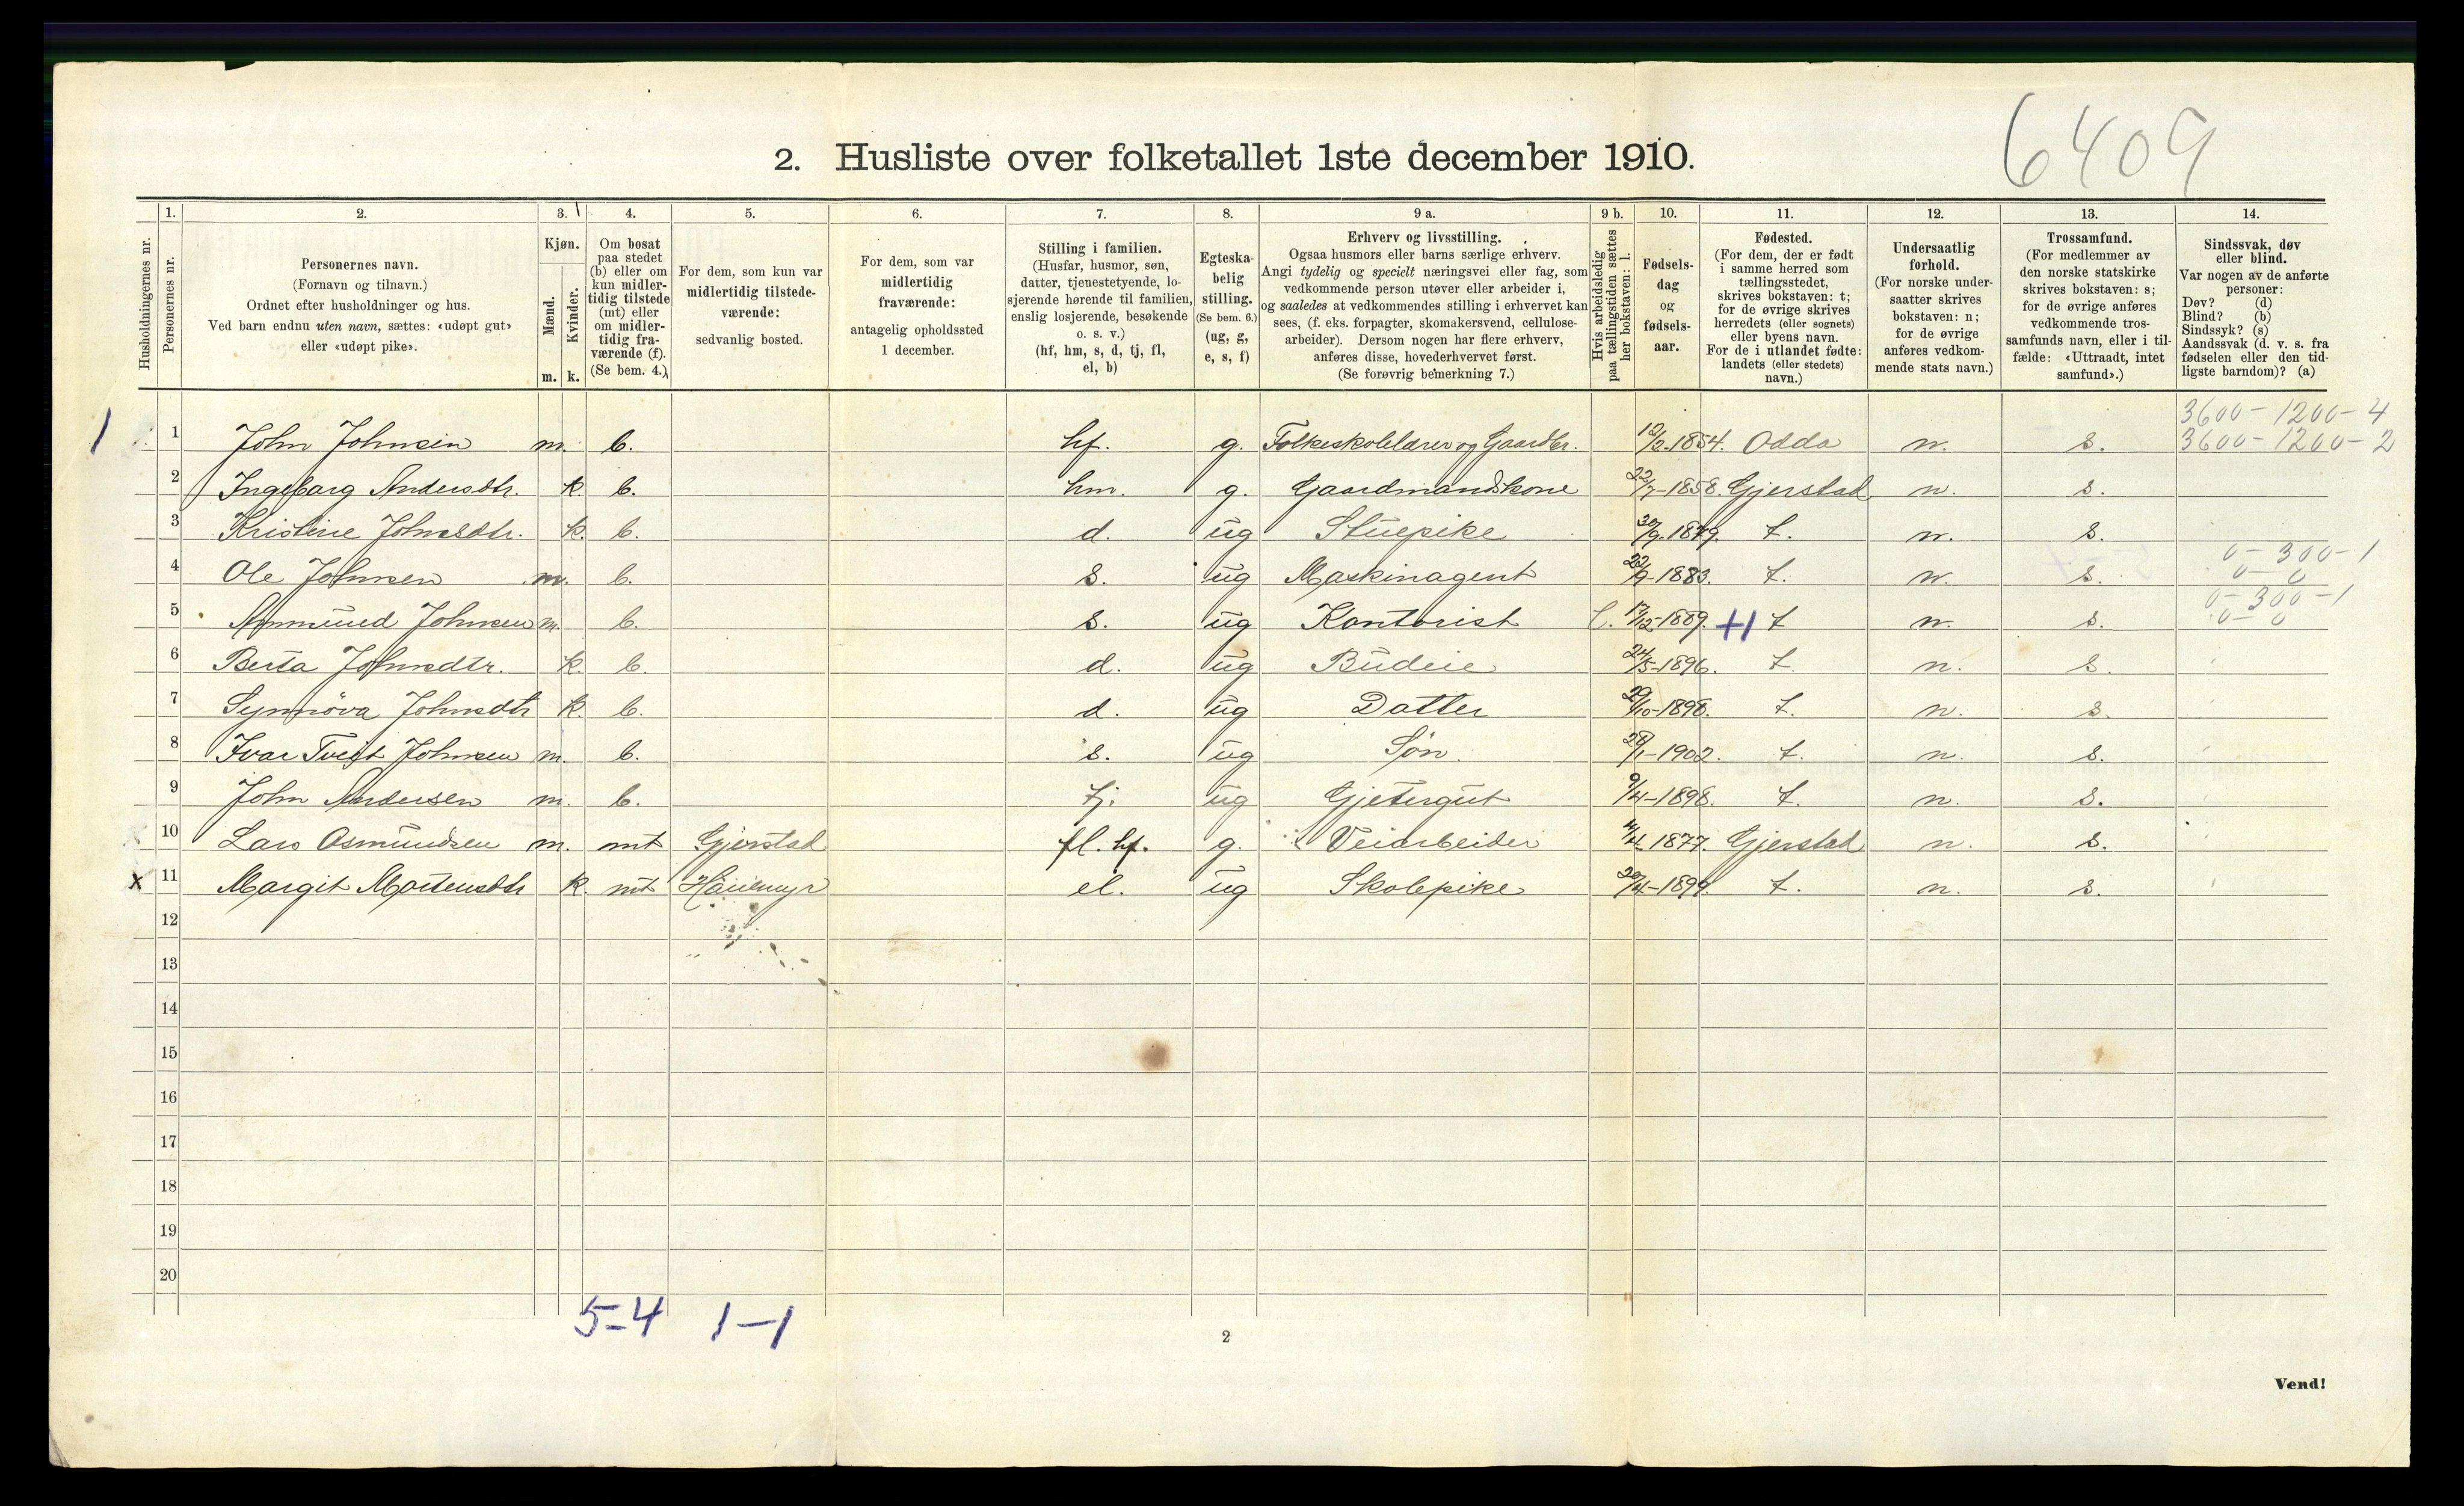 6409
2. Husliste over folketallet 1ste december 1910.
Husholdningernes nr.
1.
Personernes nr.
2.
Personernes navn.
(Fornavn og tilnavn.)
Ordnet efter husholdninger og hus.
Ved barn endnu uten navn, sættes: «udøpt gut»
eller «udøpt pike».
3.
Kjøn.
Mænd.
Kvinder.
m. k.
4.
Om bosat
paa stedet
(b) eller om
kun midler-
tidig tilstede
(mt) eller
om midler-
tidig fra-
værende (f).
(Se bem. 4.)
5.
For dem, som kun var
midlertidig tilstede-
værende:
sedvanlig bosted.
6.
For dem, som var
midlertidig
fraværende:
antagelig opholdssted
1 december.
7.
Stilling i familien.
(Husfar, husmor, søn,
datter, tjenestetyende, lo-
sjerende hørende til familien,
enslig losjerende, besøkende
o. s. v.)
(hf, hm, s, d, tj, fl,
el, b)
8.
Egteska-
belig
stilling.
(Se bem. 6.)
(ug, g,
e, s, f)
9 a.
Erhverv og livsstilling.
Ogsaa husmors eller barns særlige erhverv.
Angi tydelig og specielt næringsvei eller fag, som
vedkommende person utøver eller arbeider i,
og saaledes at vedkommendes stilling i erhvervet kan
sees, (f. eks. forpagter, skomakersvend, cellulose-
arbeider). Dersom nogen har flere erhverv,
anføres disse, hovederhvervet først.
(Se forøvrig bemerkning 7.)
9 b.
Hvis arbeidsledig
paa tællingstiden sættes
her bokstaven: l.
10.
Fødsels-
dag
og
fødsels-
aar.
11.
Fødested.
(For dem, der er født
i samme herred som
tællingsstedet,
skrives bokstaven: t;
for de øvrige skrives
herredets (eller sognets)
eller byens navn.
For de i utlandet fødte:
landets (eller stedets)
navn.)
12.
Undersaatlig
forhold.
(For norske under-
saatter skrives
bokstaven: n;
for de øvrige
anføres vedkom-
mende stats navn.)
13.
Trossamfund.
(For medlemmer av
den norske statskirke
skrives bokstaven: s;
for de øvrige anføres
vedkommende tros-
samfunds navn, eller i til-
fælde: «Uttraadt, intet
samfund».)
14.
Sindssvak, døv
eller blind.
Var nogen av de anførte
personer:
Døv? (d)
Blind? (b)
Sindssyk? (s)
Aandssvak (d. v. s. fra
fødselen eller den tid-
ligste barndom)? (a)
3600 - 1200 - 4
1 1 John Johnsen m. b. hf. g. Folkeskolelærer og Gaardbr. 12/2-1854. Odda n. s. 3600 - 1200 - 2
2 Ingeborg Andersdtr. k. b. hm. g. Gaardmandskone 22/7-1858. Gjerstad n. s.
3 Kristine Johnsdtr. k. b. d. ug Stuepike 30/9-1879. t. n. s.
0 - 300 - 1
4 Ole Johnsen m. b. s. ug Maskinagent 22/9-1883. t. n. s. 0 - 0
0 - 300 - 1
5 Ammund Johnsen m. b. s. ug Kontorist l. 17/12-1889. +1 t n. s. 0 - 0
6 Berta Johnsdtr. k. b. d. ug Budeie 24/5-1896. t. n. s.
7 Synnøva Johnsdtr k. b. d. ug Datter 29/10-1898. t. n. s.
8 Ivar Tveit Johnsen m. b. s. ug Søn. 28/1-1902. t. n. s.
9 John Andersen m. b. tj. ug Gjetergut 9/4-1898. t. n. s.
10 Lars Osmundsen m. mt Gjerstad fl. hf. g. Veiarbeider 4/4 1877. Gjerstad n. s.
x 11 Margit Mortensdtr k. mt Hauemyr el. ug Skolepike 20/4-1899. t. n. s.
12
13
14
15
16
17
18
19
20
5-4 1-1
2
Vend!